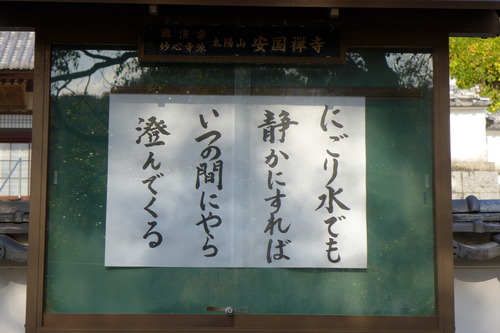 臨済宗
妙心寺派
太陽山
安国禅寺
にごり水でも
静かにすれば
いつの間にやら
澄んでくる